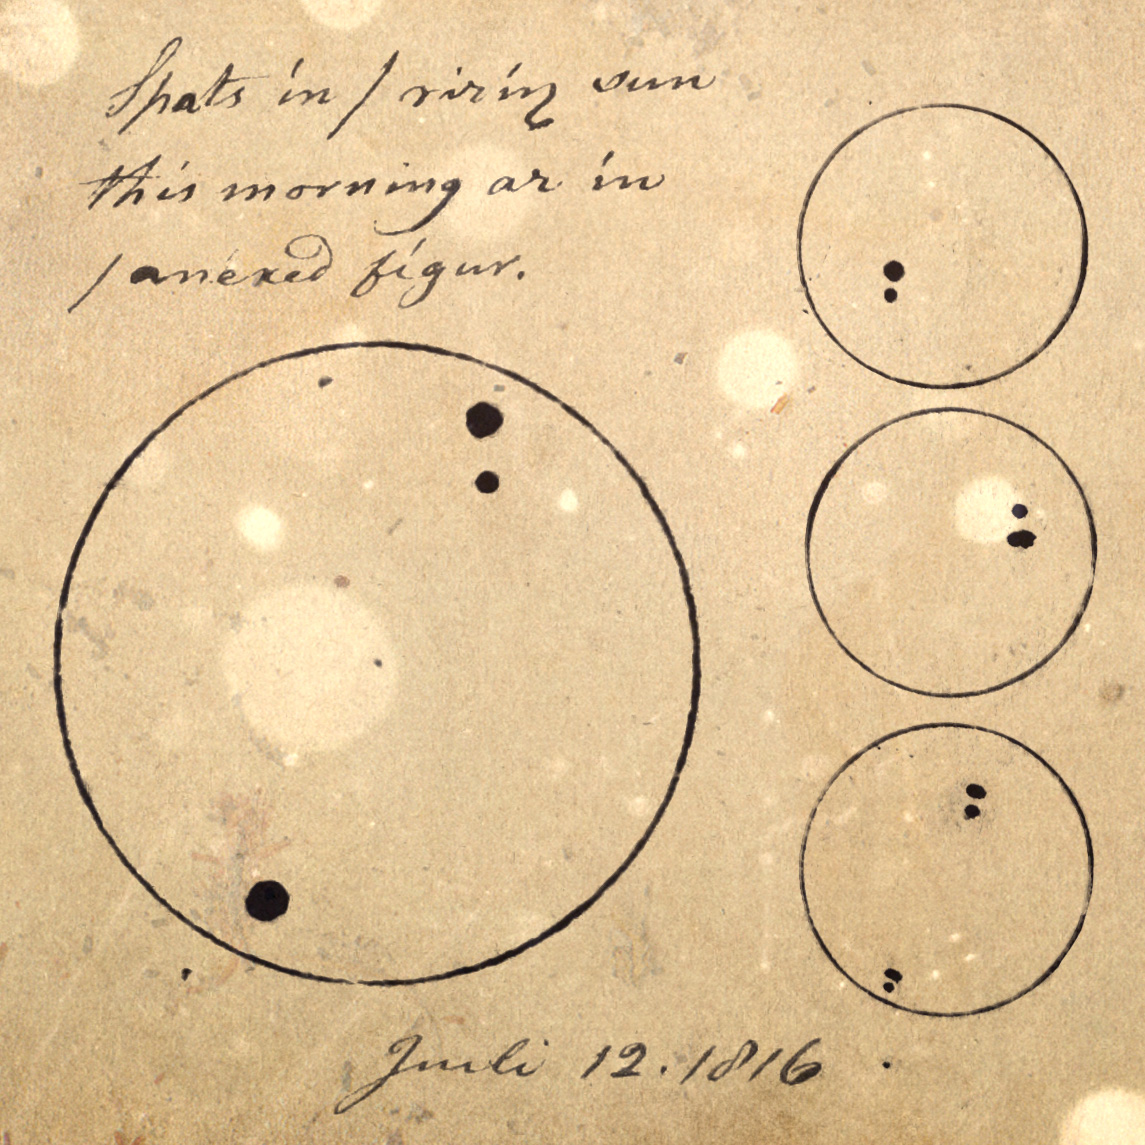 Spats in / rizing sun
this morning ar in
/ anexed figur.
Juuli 12. 1816